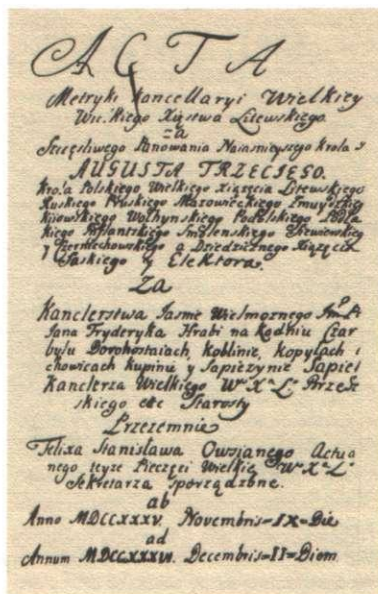 ACTA
Metryki Kancellaryi Wielkiey
Wie.kiego Xięstwa Litewskiego
za
Szczęśliwego Panowania Naiasnieyszego Krola J
AUGUSTA TRZECIEGO.
Kro.a Polskiego, Wielkiego Xiązęcia Litewskiego
Ruskiego Pruskiego Mazowieckiego Zmudzkie
Kijowskiego Wołhynskiego Podolskiego Podla
kiego Inflantskiego Smolenskiego Siewierskieg
y Czerniechowskiego a Dziedzicznego Xiązęcia
Saskiego y Elektora.
Za
Kanclerstwa Jasnie Wielmoznego
Jana Fryderyka Hrabi na Kodniu Czar
bylu Dorohostaiach, Koblinie, Kopylach i
chowicach Kupinu y Sapieżynie Sapieh
Kanclerza Wielkiego W° X° L° Brzes
skiego etc Starosty
Przezemnie
Felixa Stanisława Owsianego Actua
nego teyze Pieczęci Wielkie W° X° L°
Sekretarza sporządzone.
ab
Anno MDCCXXXV. Novembris=IX=Die
ad
Annum Decembris=II=Diem